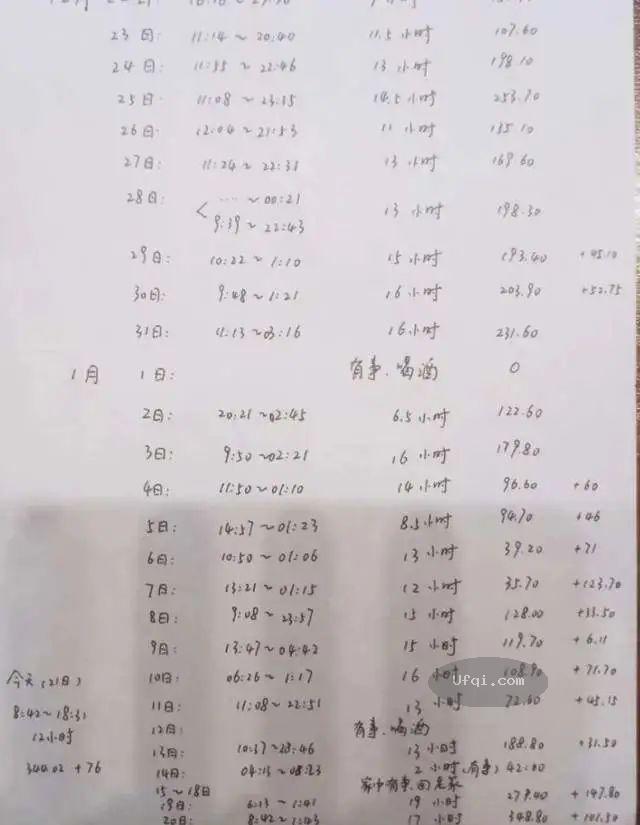 23日: 11:14~20:40 11.5小时 107.60
24日: 11:55~22:46 13小时 198.10
25日: 11:08~23:35 14.5小时 253.70
26日: 12:04~21:53 11小时 135.10
27日: 11:24~22:31 13小时 169.60
28日: ~00:21
9:39~22:43 13小时 198.30
29日: 10:22~1:10 15小时 193.40 +45.10
30日: 9:48~1:21 16小时 203.90 +52.75
31日: 11:13~03:16 16小时 231.60
1月 1日: 有事、喝酒 0
2日: 20:21~02:45 6.5小时 122.60
3日: 9:50~02:21 16小时 179.80
4日: 11:50~01:10 14小时 96.60 +60
5日: 14:57~01:23 8.5小时 94.70 +46
6日: 10:50~01:06 13小时 39.20 +71
7日: 13:21~01:15 12小时 35.70 +123.70
8日: 9:08~23:57 15小时 128.00 +33.50
9日: 13:47~04:42 15小时 119.70 +6.11
10日: 06:26~1:17 16小时 108.90 +71.70
Ufqi.com
11日: 11:08~22:51 13小时 72.60 +45.15
12日: 有事、喝酒
13日: 10:37~23:46 13小时 188.80 +31.50
14日: 04:13~08:23 2小时(有事) 42.00
15~18日 家中有事、回老家
19日: 6:13~1:41 19小时 279.40 +147.80
20日: 8:42~1:43 17小时 348.80 +101.50
今天(21日)
8:42~18:31
12小时
344.02 +76